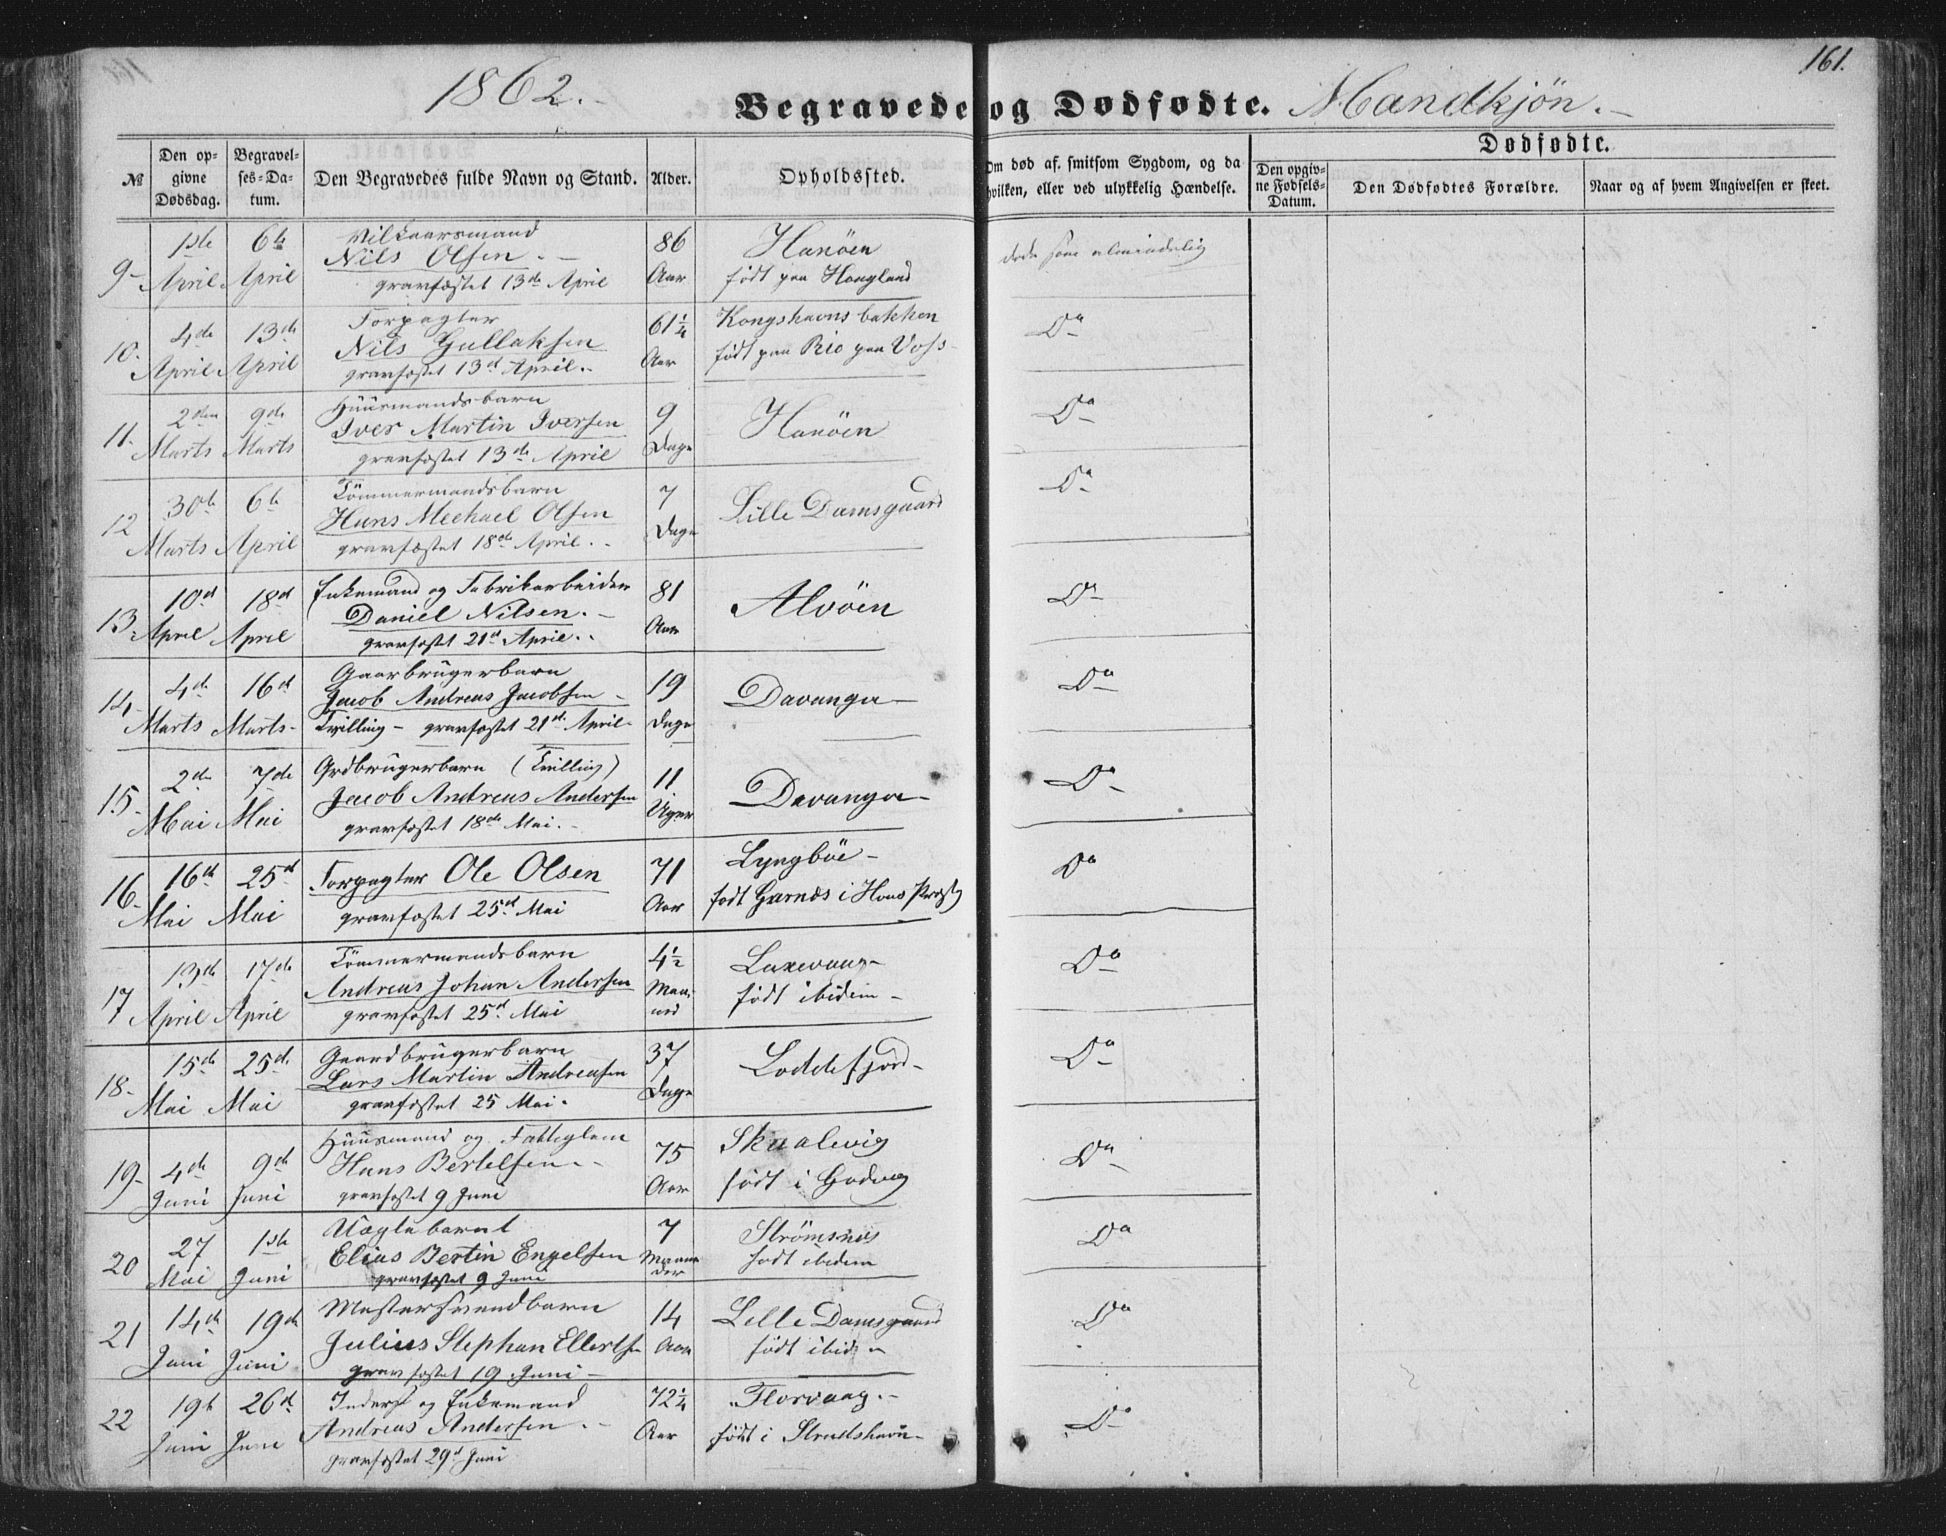 161.
1862.
Begravede og Dødfødte. Mandkjøn.
Dødfødte.
№
Den opgivne Dødsdag.
Begravelses-Datum.
Den Begravedes fulde Navn og Stand.
Alder.
Opholdssted.
Om død af smitsom Sygdom, og da hvilken, eller ved ulykkelig Hændelse.
Den opgivne Fødsels-Datum.
Den Dødfødtes Forældre.
Naar og af hvem Angivelsen er skeet.
9 1ste April 6te April Vilkaarsmand
Nils Olsen
gravfæstet 13de April
86 Aar
Hanöen
født paa Haugland
døde som almindelig
10. 4de April 13de April Forpagter
Nils Gullaksen
gravfæstet 13de April
61¼ Aar
Kongshavns bakken
født paa Rio paa Voss
Do
11. 2den Marts 9de Marts Huusmandsbarn
Iver Martin Iversen
gravfæstet 13de April
9 Dage
Hanöen
Do
12 30te Marts 6te April Tömmermandsbarn
Hans Mechael Olsen
gravfæstet 18de April
7 Dage
Lille Damsgaard
Do
13. 10de April 18de April Enkemand og Fabrikarbeider
Daniel Nilsen
gravfæstet 21de April
81 Aar
Alvöen
Do
14. 4de Marts 16de Marts Gaarbrugerbarn
Jacob Andreas Jacobsen
Tvilling - gravfæstet 21de April
19 Dage
Davanger
Do
15. 2den Mai 7de Mai Grdbrugerbarn (Tvilling)
Jacob Andreas Andersen
gravfæstet 18de Mai
11 Uger
Davanger
Do
16. 16de Mai 25de Mai Forpagter Ole Olsen
gravfæstet 25de Mai
71 Aar
Lyngböe
født Garnæs i Hous
Do
17 13de April 17de April Tömmermandsbarn
Andreas Johan Andersen
gravfæstet 25de Mai
4½ Maaned
Laxevaag
født ibidem
Do
18. 15de Mai 25de Mai Gaardbrugerbarn
Lars Martin Andreasen
gravfæstet 25 Mai
37 Dage
Loddefjord
Do
19 4de Juni 9de Juni Huusmand og Fattiglem
Hans Bertelsen
gravfæstet 9 Juni
75 Aar
Skaalevig
født i Godvig
Do
20 27 Mai 1ste Juni Uægte barnet
Elias Bertin Engelsen
gravfæstet 9 Juni
7 Maaneder
Strömsnæs
født ibidem
Do
21 14de Juni 19de Juni Mestersvendbarn
Julius Stephan Ellertsen
gravfæstet 19 Juni
14 Aar
Lille Damsgaard
født ibidem
Do
22 19de Juni 26de Juni Inderst og Enkemand
Andreas Andersen
gravfæstet 29de Juni
72¼ Aar
Florvaag
født i Strudshavn
Do